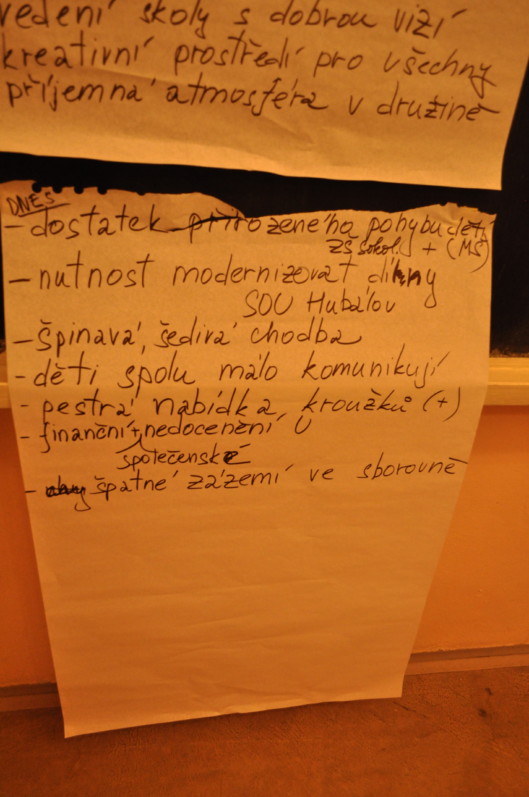 vedení školy s dobrou vizí
kreativní prostředí pro všechny
příjemná atmosféra v družině
DNES
- dostatek přirozeného pohybu dětí
ZŠ Sokoly + (MŠ)
- nutnost modernizovat dílny
SOU Hubálov
- špinavá, šedivá chodba
- děti spolu málo komunikují
- pestrá nabídka kroužků (+)
- finanční + nedocenění U
společenské
- špatné zázemí ve sborovně